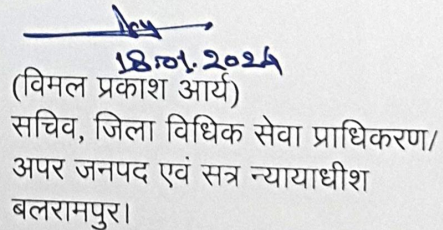 18.01.2024
(विमल प्रकाश आर्य)
सचिव, जिला विधिक सेवा प्राधिकरण/
अपर जनपद एवं सत्र न्यायाधीश
बलरामपुर।